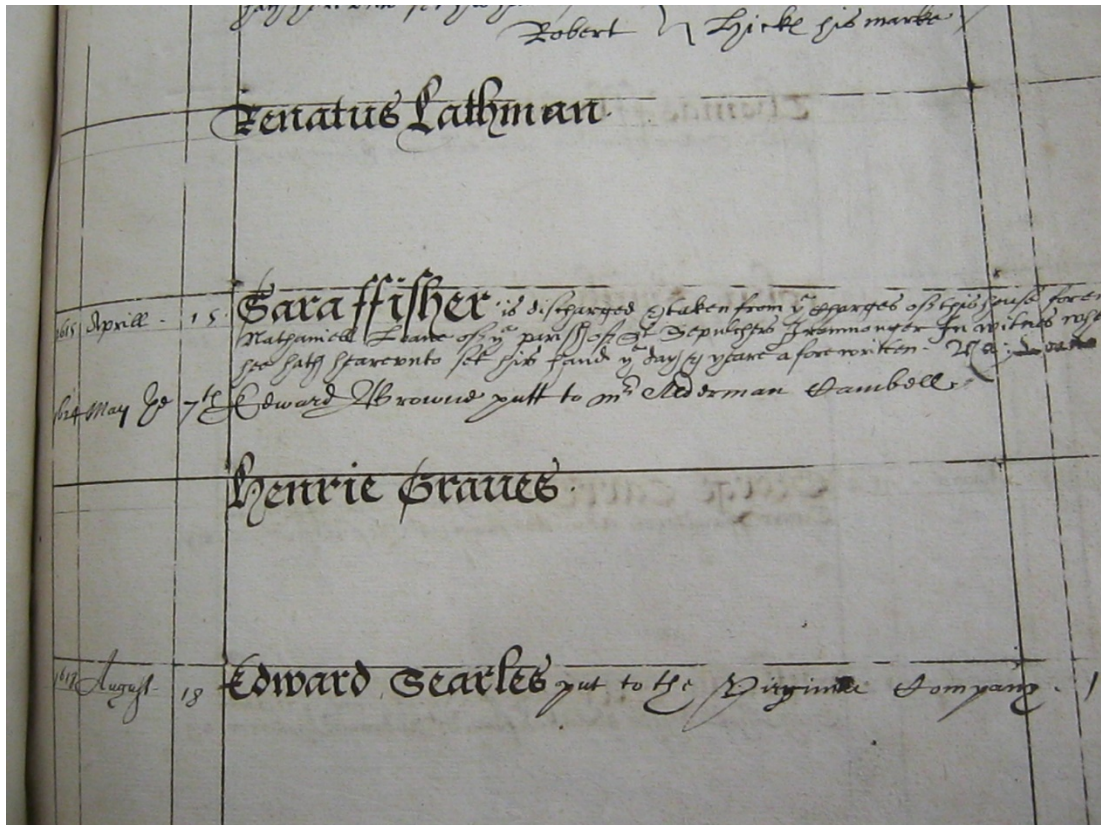 Robert Hicke his marke
Renatus Lathman
1615 Aprill 15 Sara ffisher is discharged & taken from ye charges of this house forev
Nathaniell of ye parish of St Sepulchers Iremonger In witnes whe
hee hath hearevnto set his hand ye day & yeare aforewritten
1624 May ye 7th Edward Browne putt to mr Alderman Cambell
Henrie Graues
August 18 Edward Searles put to the Virginia Company